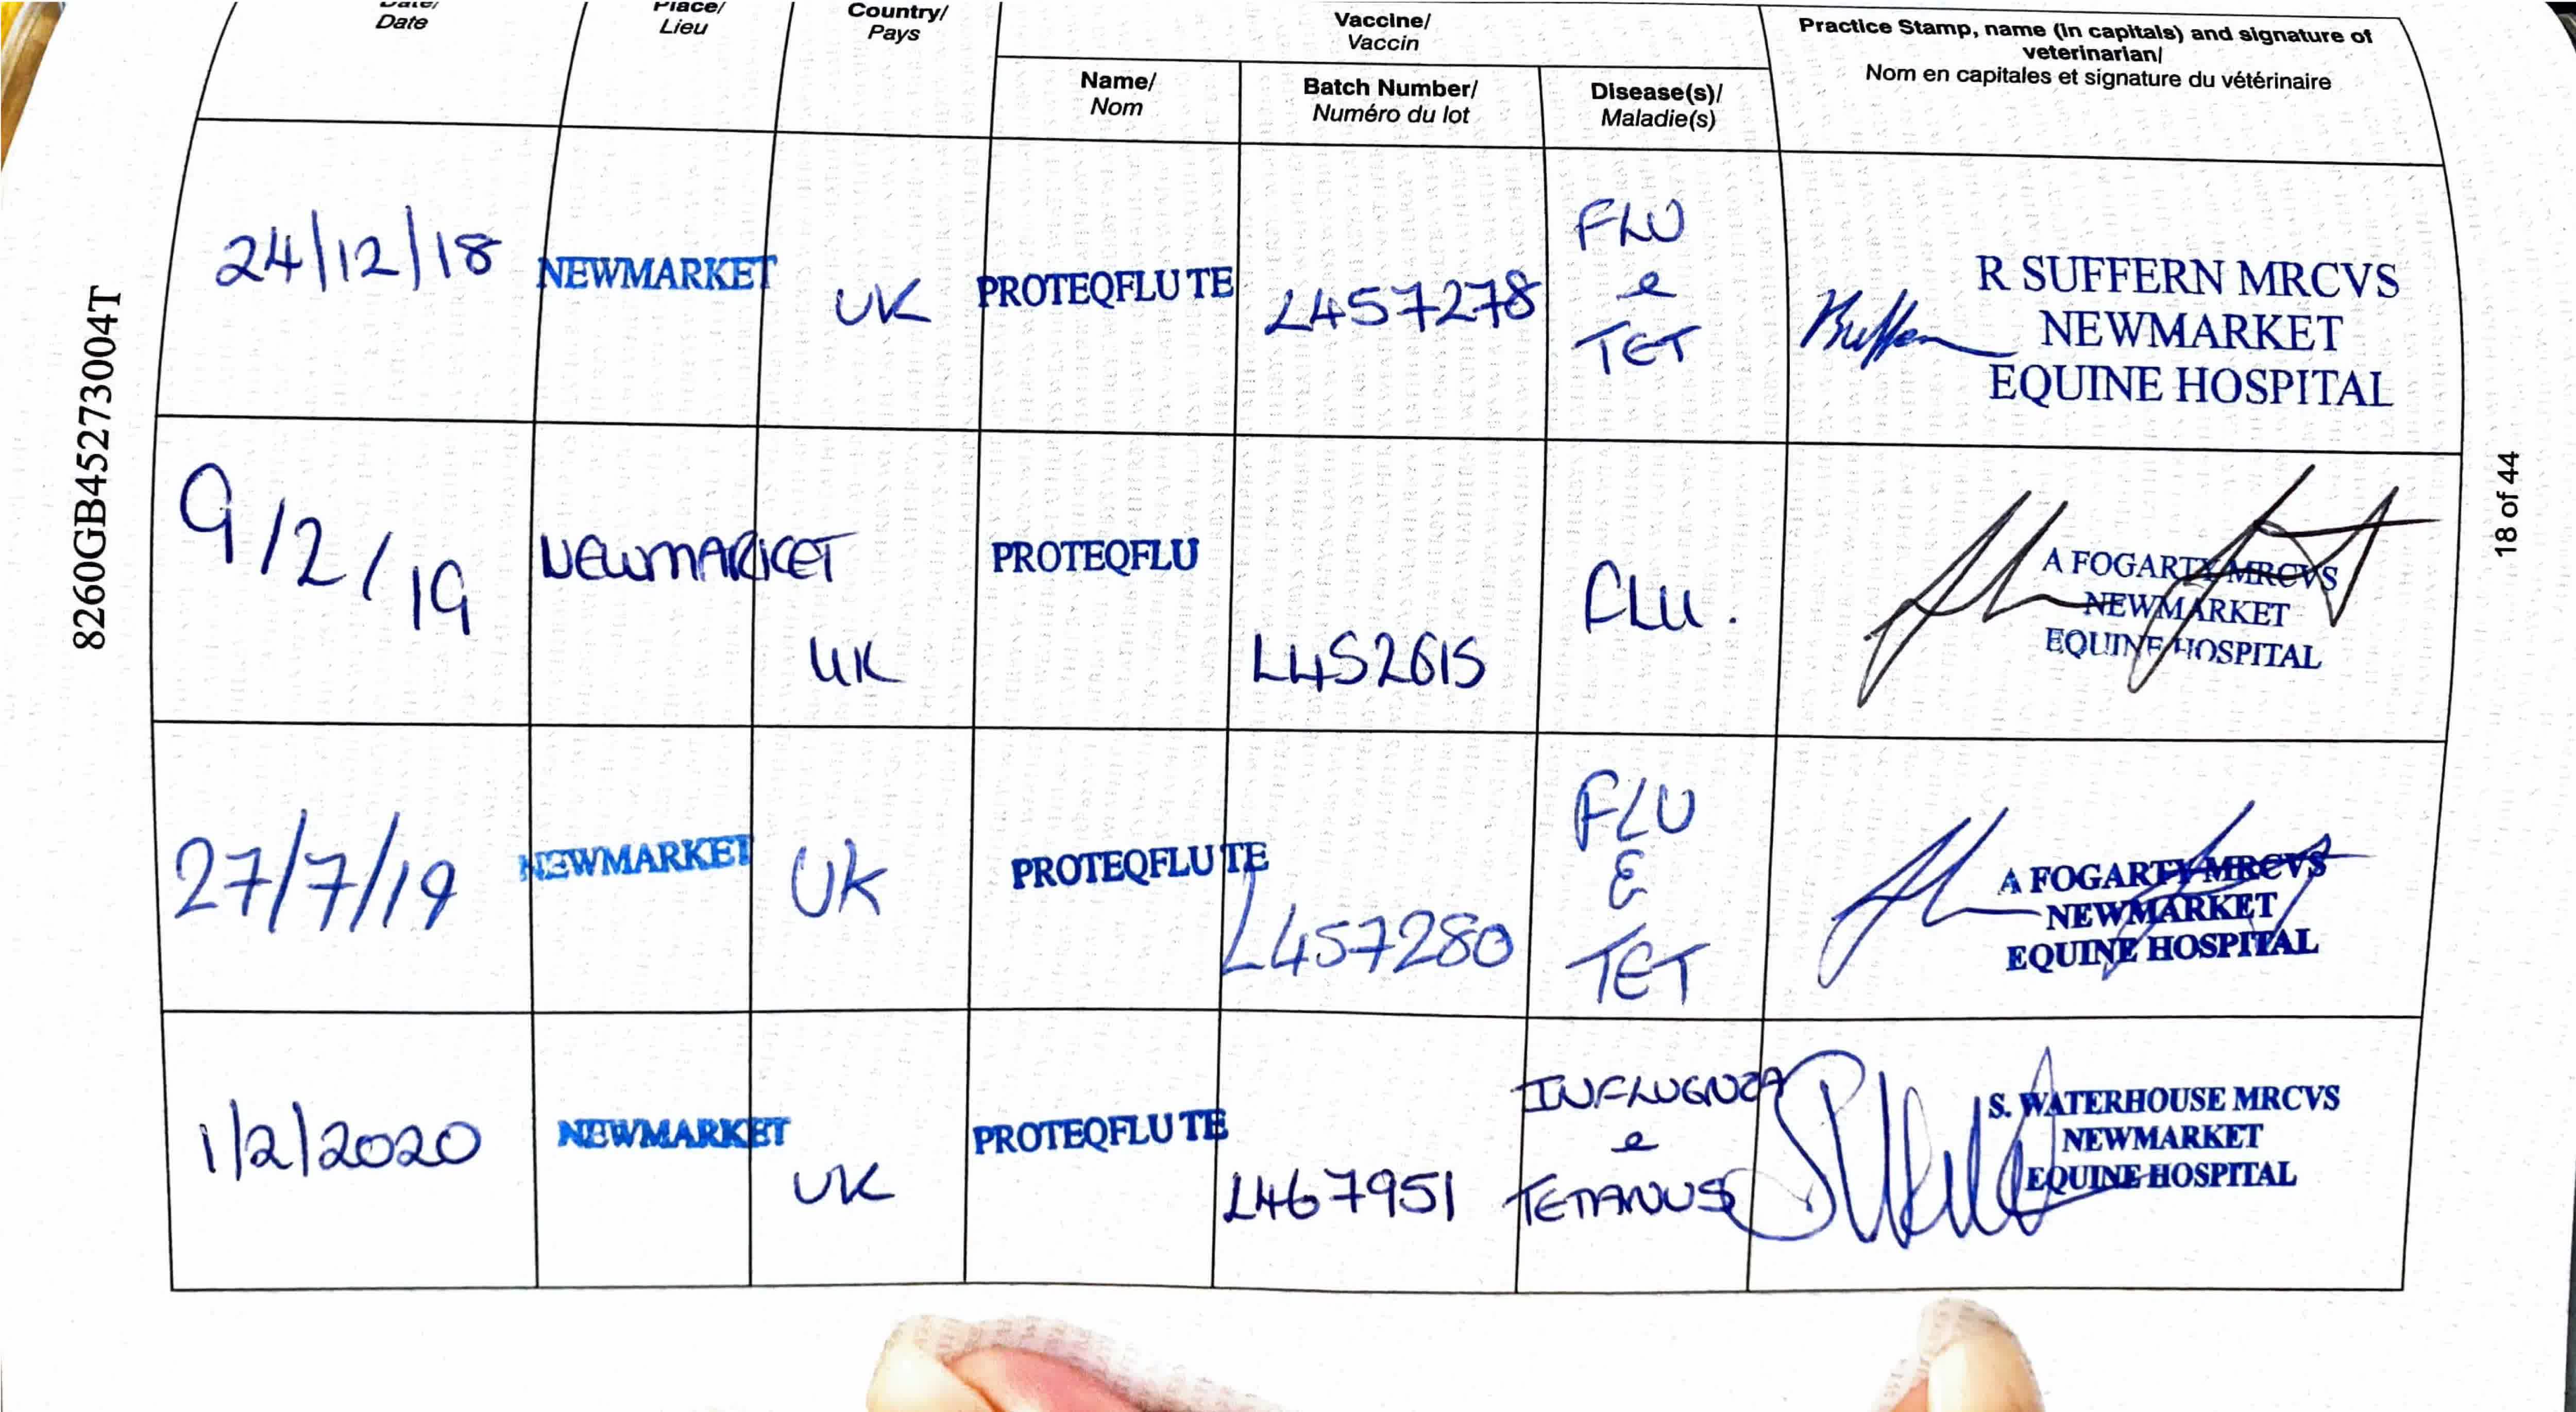 Date/ Place/ Country/ Vaccine/ Practice Stamp, name (in capitals) and signature of
Date Lieu Pays Vaccin veterinarian/
Nom en capitales et signature du vétérinaire
Name/ Batch Number/ Disease(s)/
Nom Numéro du lot Maladie(s)
24/12/18 NEWMARKET UK PROTEQFLU TE L457278
FLU
e
TET
R SUFFERN MRCVS
NEWMARKET
EQUINE HOSPITAL
9/2/19 NEWMARKET UK PROTEQFLU L452615 FLU.
A FOGARTY MRCVS
NEWMARKET
EQUINE HOSPITAL
27/7/19 NEWMARKET UK PROTEQFLU TE L457280
FLU
&
TET
A FOGARTY MRCVS
NEWMARKET
EQUINE HOSPITAL
1/2/2020 NEWMARKET UK PROTEQFLU TE L467951
INFLUENZA
e
TETANUS
S. WATERHOUSE MRCVS
NEWMARKET
EQUINE HOSPITAL
8260GB45273004T
18 of 44